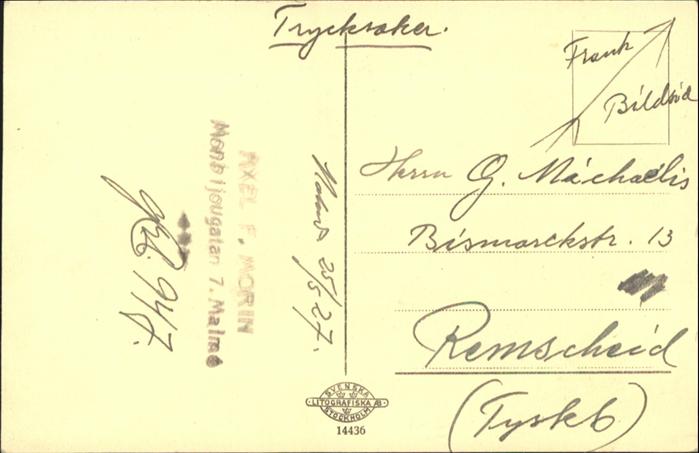 Trycksaker.
Frank
Bildsid
Herrn G. Michaelis
Bismarckstr. 13
Remscheid
(Tyskl)
25/5 27.
AXEL F. MORIN
Monbijougatan 7. Malmö
947
SVENSKA
LITOGRAFISKA AB.
STOCKHOLM
14436